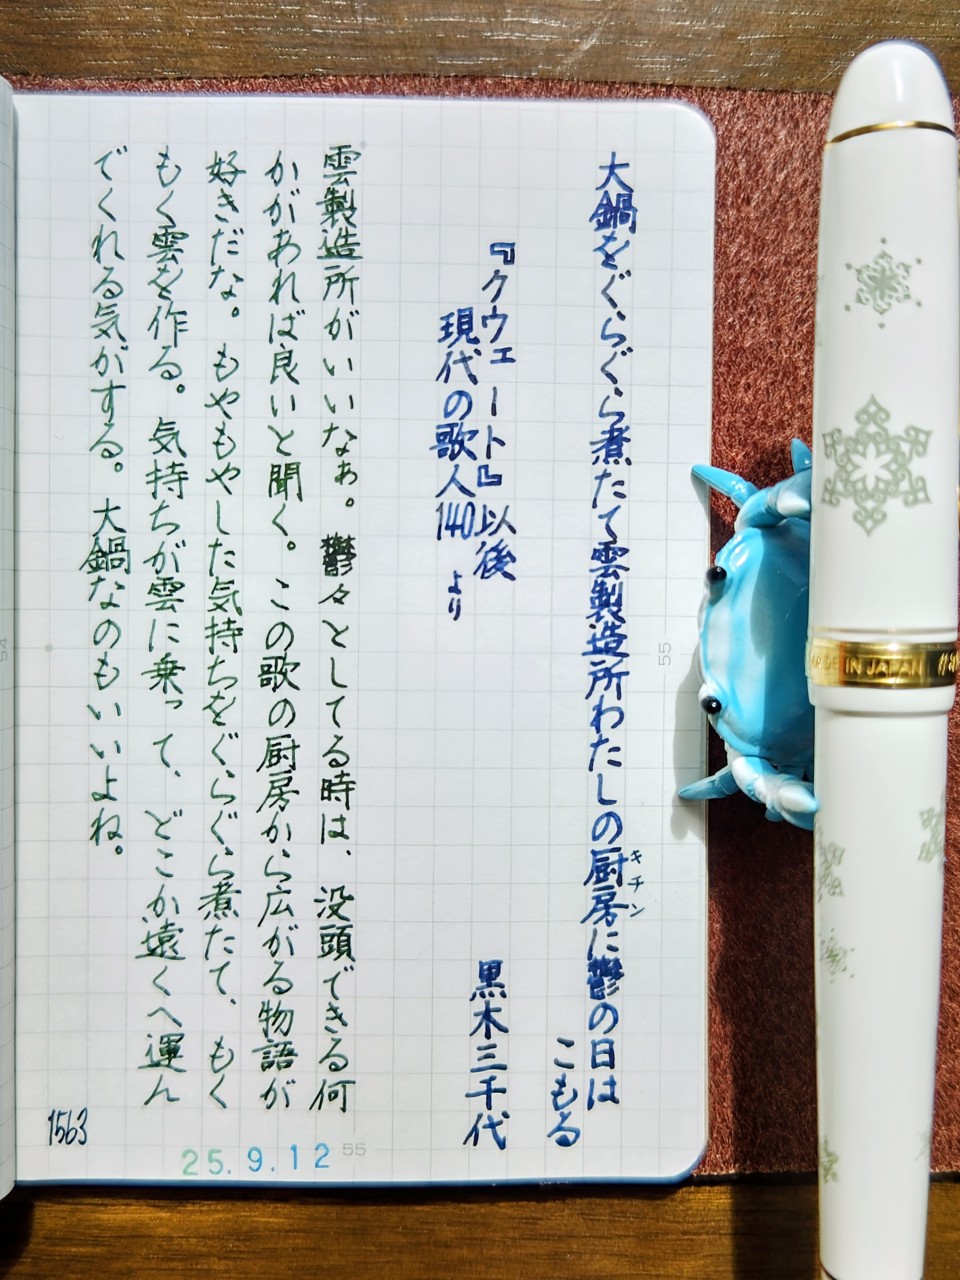 大鍋をぐらぐら煮たて雲製造所わたしの厨房に鬱の日は
キチン
こもる
『クウェート』以後
現代の歌人140 より
黒木三千代
雲製造所がいいなぁ。鬱々としてる時は、没頭できる何
かがあれば良いと聞く。この歌の厨房から広がる物語が
好きだな。もやもやした気持ちをぐらぐら煮たて、もく
もく雲を作る。気持ちが雲に乗って、どこか遠くへ運ん
でくれる気がする。大鍋なのもいいよね。
1563
25.9.12
55
55
54
MADE IN JAPAN